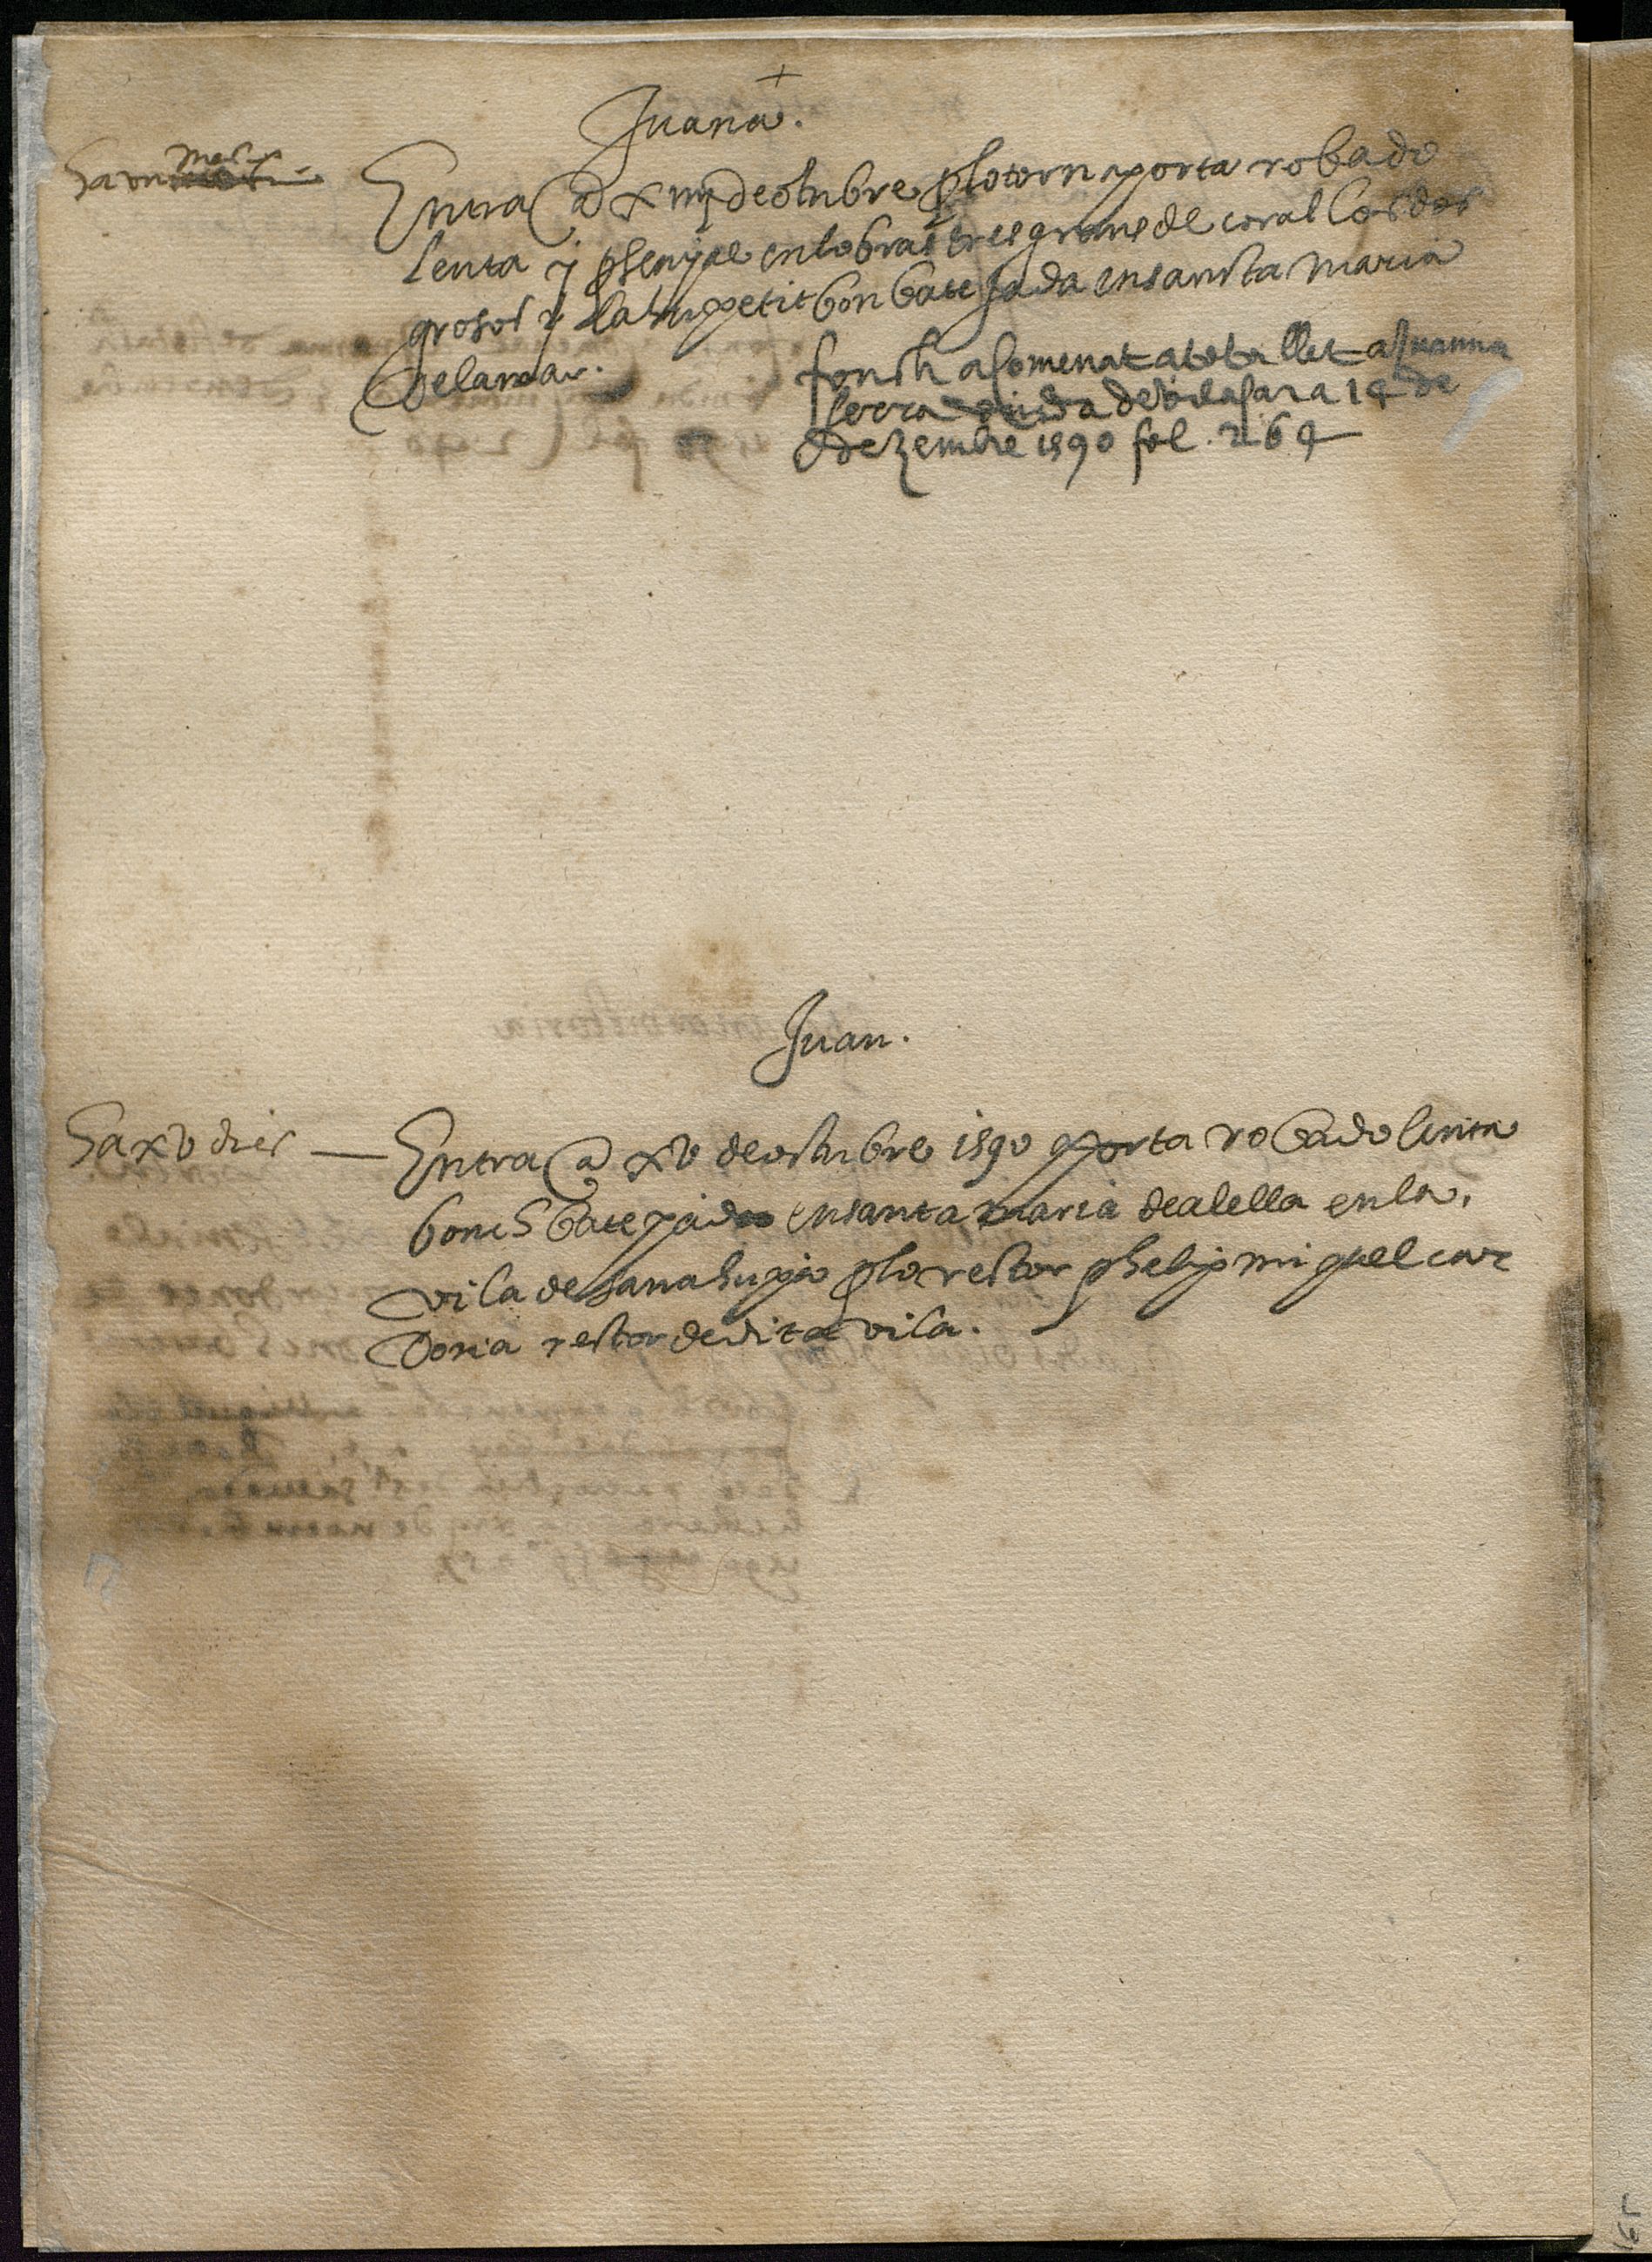 +
Juana.
Entra a xiiij de octubre plo torn y porta roba do
lenta y p senyal en lo bras tres grans de corall los dos
grosos y la hu petit bon batejada en santa maria
de la mar.
fonch acomenat a tota llet a Juanna
serra viuda de vilasara 14 de
dezembre 1590 fol. 264
Juan.
Ha xv dies — Entra a xv de octubre 1590 y porta roba dolenta
bones batejado en santa maria de alella en la
vila de sanahuja plo rector phelip miquel car
dona rector de dita vila.